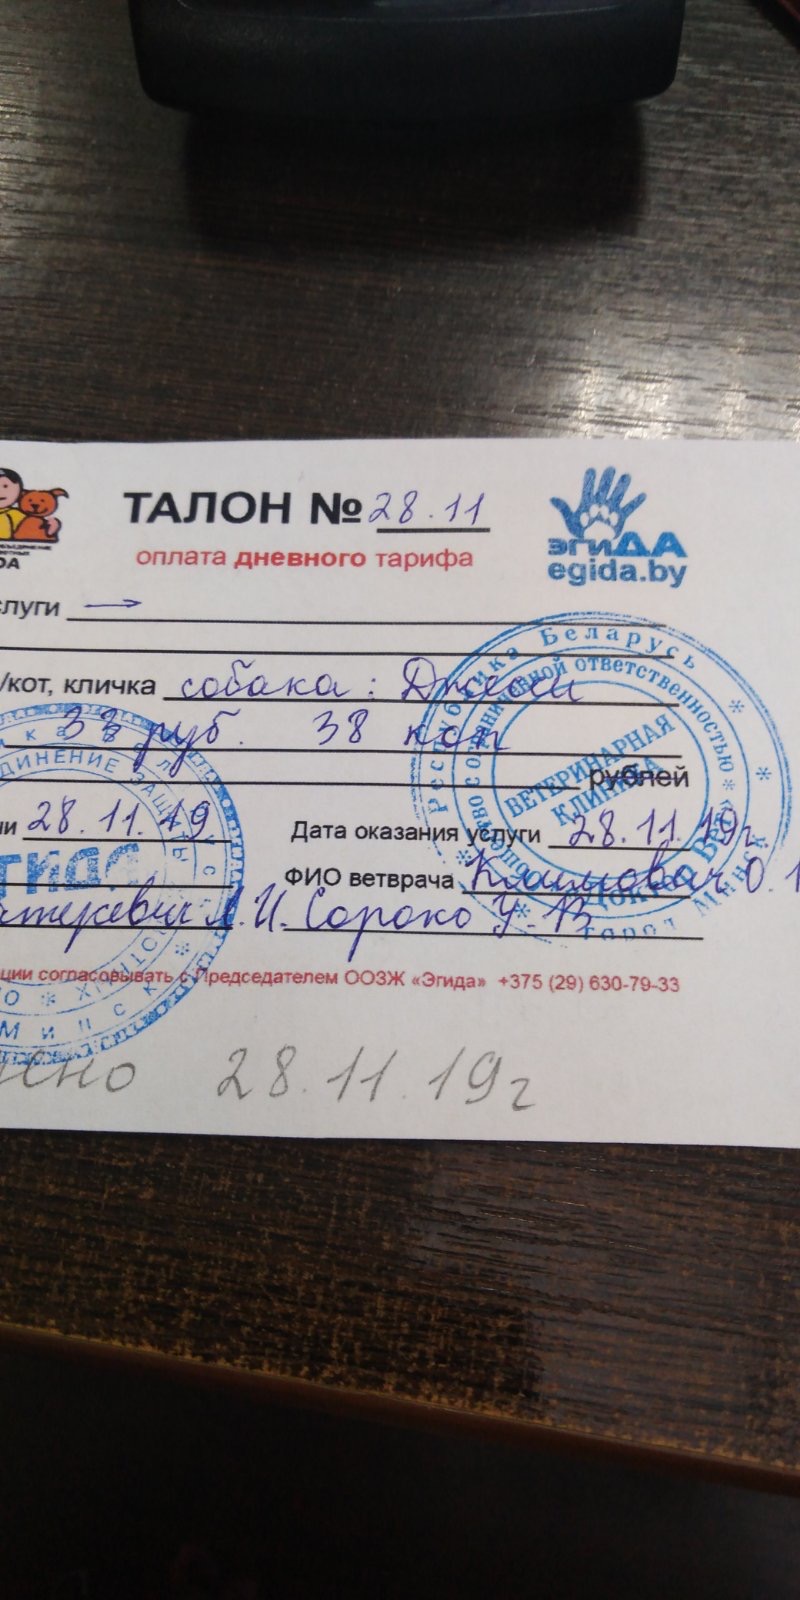 ТАЛОН № 28.11
эгиДА
оплата дневного тарифа
egida.by
слуги →
/кот, кличка собака: Джесси
33 руб. 38 коп
рублей
28.11.19 Дата оказания услуги 28.11.19г.
ФИО ветврача Климович О.
А.И. Сороко У.В.
ции согласовывать с Председателем ООЗЖ «Эгида» +375 (29) 630-79-33
28.11.19г
Республика Беларусь
с ограниченной ответственностью
ВЕТЕРИНАРНАЯ
КЛИНИКА
город Минск
ДИНЕНИЕ ЗАЩИТЫ
ГИДА